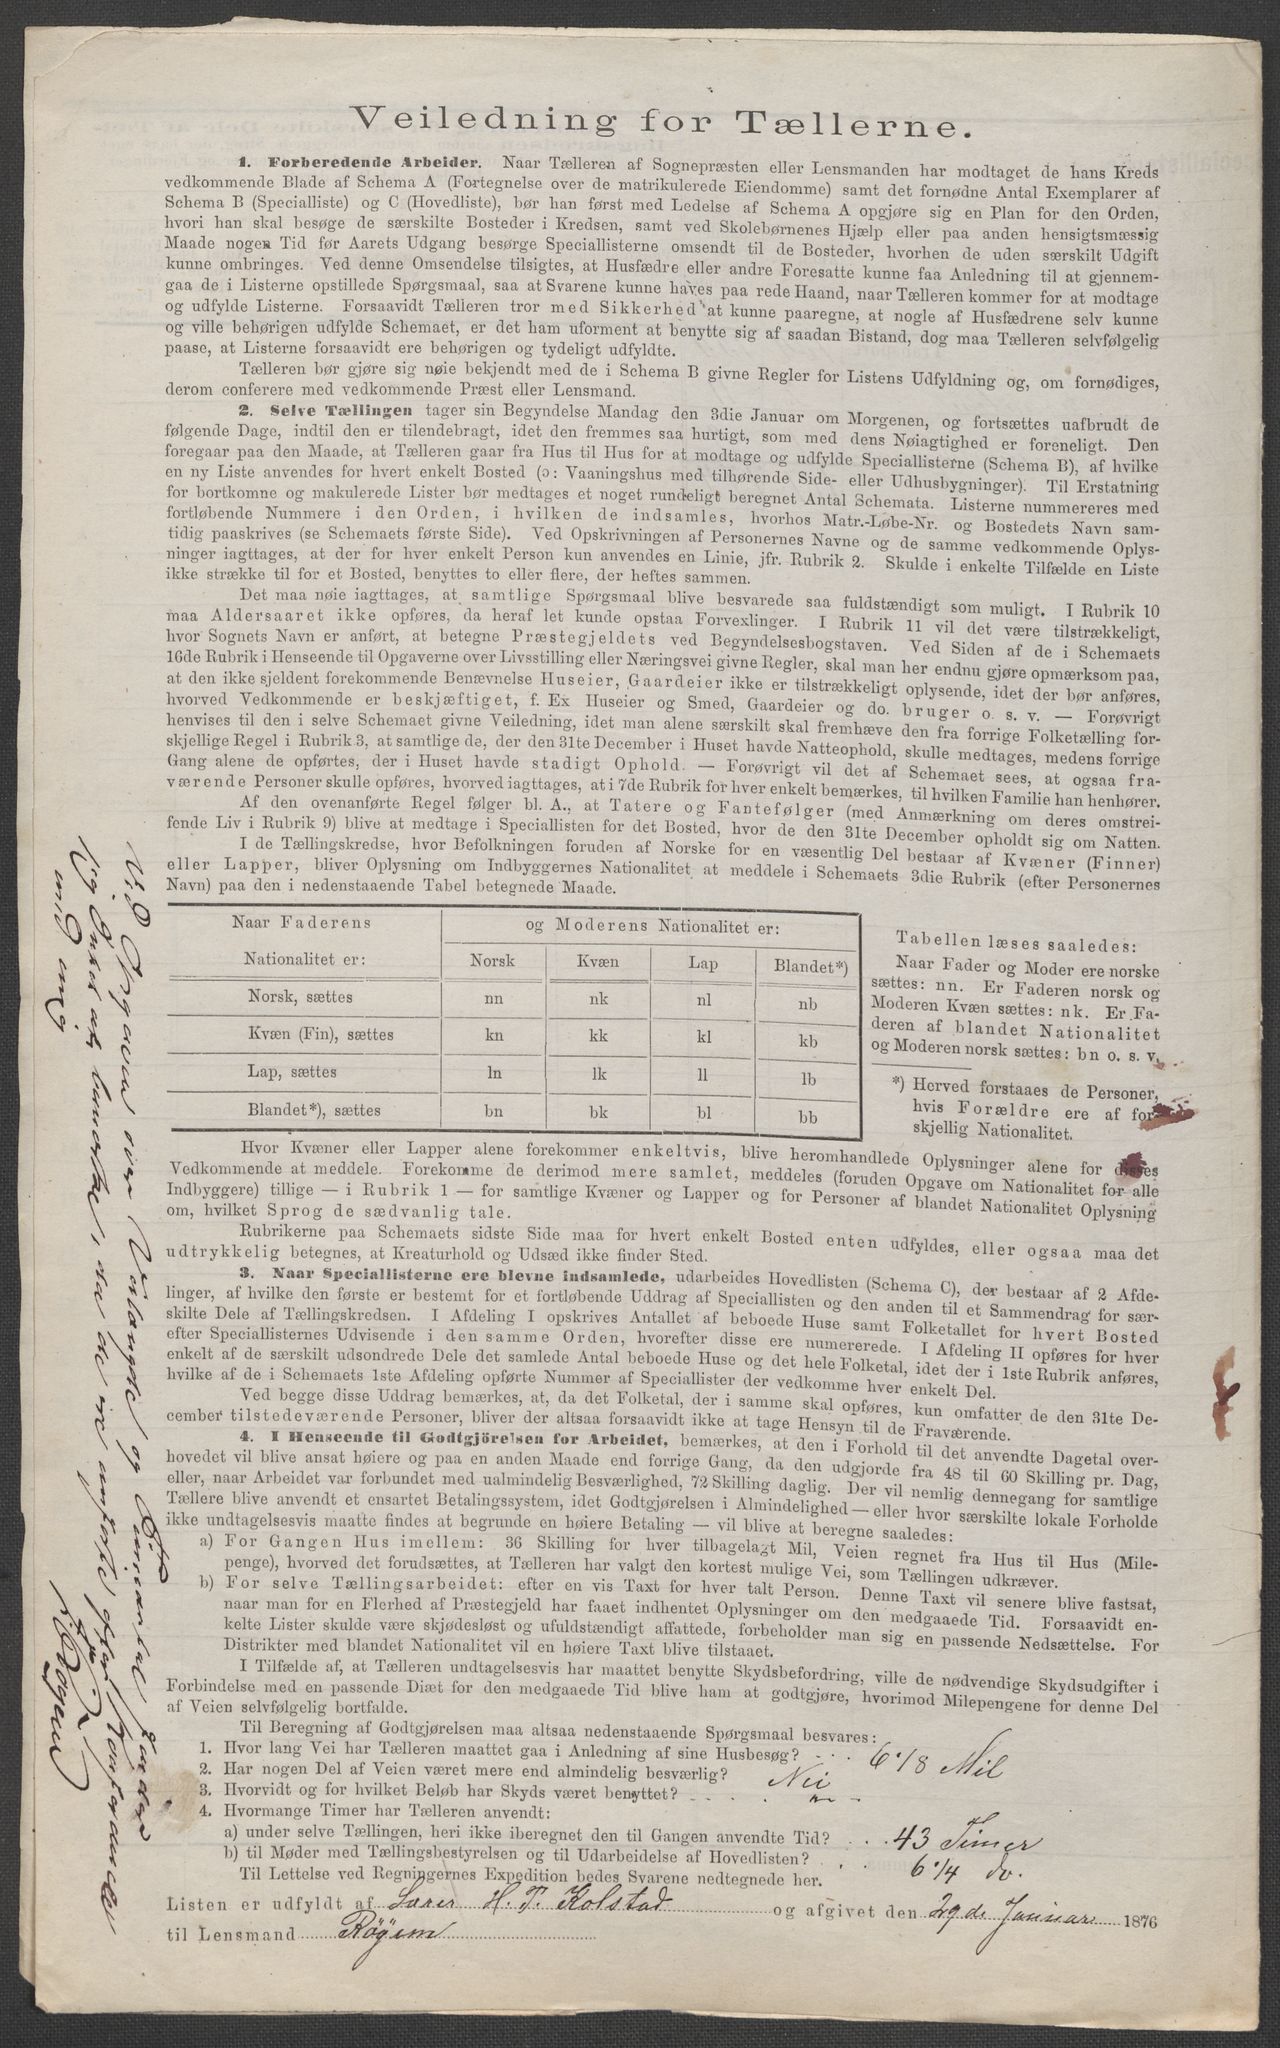 Veiledning for Tællerne.
1. Forberedende Arbeider. Naar Tælleren af Sognepræsten eller Lensmanden har modtaget de hans Kreds
vedkommende Blade af Schema A (Fortegnelse over de matrikulerede Eiendomme) samt det fornødne Antal Exemplarer af
Schema B (Specialliste) og C (Hovedliste), bør han først med Ledelse af Schema A opgjøre sig en Plan for den Orden,
hvori han skal besøge de særskilte Bosteder i Kredsen, samt ved Skolebørnenes Hjælp eller paa anden hensigtsmæssig
Maade nogen Tid før Aarets Udgang besørge Speciallisterne omsendt til de Bosteder, hvorhen de uden særskilt Udgift
kunne ombringes. Ved denne Omsendelse tilsigtes, at Husfædre eller andre Foresatte kunne faa Anledning til at gjennem-
gaa de i Listerne opstillede Spørgsmaal, saa at Svarene kunne haves paa rede Haand, naar Tælleren kommer for at modtage
og udfylde Listerne. Forsaavidt Tælleren tror med Sikkerhed at kunne paaregne, at nogle af Husfædrene selv kunne
og ville behørigen udfylde Schemaet, er det ham uforment at benytte sig af saadan Bistand, dog maa Tælleren selvfølgelig
paase, at Listerne forsaavidt ere behørigen og tydeligt udfyldte.
Tælleren bør gjøre sig nøie bekjendt med de i Schema B givne Regler for Listens Udfyldning og, om fornødiges,
derom conferere med vedkommende Præst eller Lensmand.
2. Selve Tællingen tager sin Begyndelse Mandag den 3die Januar om Morgenen, og fortsættes uafbrudt de
følgende Dage, indtil den er tilendebragt, idet den fremmes saa hurtigt, som med dens Nøiagtighed er foreneligt. Den
foregaar paa den Maade, at Tælleren gaar fra Hus til Hus for at modtage og udfylde Speciallisterne (Schema B), af hvilke
en ny Liste anvendes for hvert enkelt Bosted (ɔ: Vaaningshus med tilhørende Side- eller Udhusbygninger). Til Erstatning
for bortkomne og makulerede Lister bør medtages et noget rundeligt beregnet Antal Schemata. Listerne nummereres med
fortløbende Nummere i den Orden, i hvilken de indsamles, hvorhos Matr.-Løbe-Nr. og Bostedets Navn sam-
tidig paaskrives (se Schemaets første Side). Ved Opskrivningen af Personernes Navne og de samme vedkommende Oplys-
ninger iagttages, at der for hver enkelt Person kun anvendes en Linie, jfr. Rubrik 2. Skulde i enkelte Tilfælde en Liste
ikke strække til for et Bosted, benyttes to eller flere, der heftes sammen.
Det maa nøie iagttages, at samtlige Spørgsmaal blive besvarede saa fuldstændigt som muligt. I Rubrik 10
maa Aldersaaret ikke opføres, da heraf let kunde opstaa Forvexlinger. I Rubrik 11 vil det være tilstrækkeligt,
hvor Sognets Navn er anført, at betegne Præstegjeldets ved Begyndelsesbogstaven. Ved Siden af de i Schemaets
16de Rubrik i Henseende til Opgaverne over Livsstilling eller Næringsvei givne Regler, skal man her endnu gjøre opmærksom paa,
at den ikke sjeldent forekommende Benævnelse Huseier, Gaardeier ikke er tilstrækkeligt oplysende, idet der bør anføres,
hvorved Vedkommende er beskjæftiget, f. Ex Huseier og Smed, Gaardeier og do. bruger o. s. v. — Forøvrigt
henvises til den i selve Schemaet givne Veiledning, idet man alene særskilt skal fremhæve den fra forrige Folketælling for-
skjellige Regel i Rubrik 3, at samtlige de, der den 31te December i Huset havde Natteophold, skulle medtages, medens forrige
Gang alene de opførtes, der i Huset havde stadigt Ophold. — Forøvrigt vil det af Schemaet sees, at ogsaa fra-
værende Personer skulle opføres, hvorved iagttages, at i 7de Rubrik for hver enkelt bemærkes, til hvilken Familie han henhører.
Af den ovenanførte Regel følger bl. A., at Tatere og Fantefølger (med Anmærkning om deres omstrei-
fende Liv i Rubrik 9) blive at medtage i Speciallisten for det Bosted, hvor de den 31te December opholdt sig om Natten.
I de Tællingskredse, hvor Befolkningen foruden af Norske for en væsentlig Del bestaar af Kvæner (Finner)
eller Lapper, bliver Oplysning om Indbyggernes Nationalitet at meddele i Schemaets 3die Rubrik (efter Personernes
Navn) paa den i nedenstaaende Tabel betegnede Maade.
Naar Faderens og Moderens Nationalitet er:
Nationalitet er: Norsk Kvæn Lap Blandet*)
Norsk, sættes nn nk nl nb
Kvæn (Fin), sættes kn kk kl kb
Lap, sættes ln lk ll lb
Blandet*), sættes bn bk bl bb
Tabellen læses saaledes:
Naar Fader og Moder ere norske
sættes: nn. Er Faderen norsk og
Moderen Kvæn sættes: nk. Er Fa-
deren af blandet Nationalitet
og Moderen norsk sættes: bn o. s. v.
*) Herved forstaaes de Personer,
hvis Forældre ere af for-
skjellig Nationalitet.
Hvor Kvæner eller Lapper alene forekommer enkeltvis, blive heromhandlede Oplysninger alene for disses
Vedkommende at meddele. Forekomme de derimod mere samlet, meddeles (foruden Opgave om Nationalitet for alle
Indbyggere) tillige — i Rubrik 1 — for samtlige Kvæner og Lapper og for Personer af blandet Nationalitet Oplysning
om, hvilket Sprog de sædvanlig tale.
Rubrikerne paa Schemaets sidste Side maa for hvert enkelt Bosted enten udfyldes, eller ogsaa maa det
udtrykkelig betegnes, at Kreaturhold og Udsæd ikke finder Sted.
3. Naar Speciallisterne ere blevne indsamlede, udarbeides Hovedlisten (Schema C), der bestaar af 2 Afde-
linger, af hvilke den første er bestemt for et fortløbende Uddrag af Speciallisten og den anden til et Sammendrag for sær-
skilte Dele af Tællingskredsen. I Afdeling I opskrives Antallet af beboede Huse samt Folketallet for hvert Bosted
efter Speciallisternes Udvisende i den samme Orden, hvorefter disse ere numererede. I Afdeling II opføres for hver
enkelt af de særskilt udsondrede Dele det samlede Antal beboede Huse og det hele Folketal, idet der i 1ste Rubrik anføres,
hvilke af de i Schemaets 1ste Afdeling opførte Nummer af Speciallister der vedkomme hver enkelt Del.
Ved begge disse Uddrag bemærkes, at, da det Folketal, der i samme skal opføres, kun omfatter de den 31te De-
cember tilstedeværende Personer, bliver der altsaa forsaavidt ikke at tage Hensyn til de Fraværende.
4. I Henseende til Godtgjörelsen for Arbeidet, bemærkes, at den i Forhold til det anvendte Dagetal over-
hovedet vil blive ansat høiere og paa en anden Maade end forrige Gang, da den udgjorde fra 48 til 60 Skilling pr. Dag,
eller, naar Arbeidet var forbundet med ualmindelig Besværlighed, 72 Skilling daglig. Der vil nemlig dennegang for samtlige
Tællere blive anvendt et ensartet Betalingssystem, idet Godtgjørelsen i Almindelighed — eller hvor særskilte lokale Forholde
ikke undtagelsesvis maatte findes at begrunde en høiere Betaling — vil blive at beregne saaledes:
a) For Gangen Hus imellem: 36 Skilling for hver tilbagelagt Mil, Veien regnet fra Hus til Hus (Mile-
penge), hvorved det forudsættes, at Tælleren har valgt den kortest mulige Vei, som Tællingen udkræver.
b) For selve Tællingsarbeidet: efter en vis Taxt for hver talt Person. Denne Taxt vil senere blive fastsat,
naar man for en Flerhed af Præstegjeld har faaet indhentet Oplysninger om den medgaaede Tid. Forsaavidt en-
kelte Lister skulde være skjødesløst og ufuldstændigt affattede, forbeholder man sig en passende Nedsættelse. For
Distrikter med blandet Nationalitet vil en høiere Taxt blive tilstaaet.
I Tilfælde af, at Tælleren undtagelsesvis har maattet benytte Skydsbefordring, ville de nødvendige Skydsudgifter i
Forbindelse med en passende Diæt for den medgaaede Tid blive ham at godtgjøre, hvorimod Milepengene for denne Del
af Veien selvfølgelig bortfalde.
Til Beregning af Godtgjørelsen maa altsaa nedenstaaende Spørgsmaal besvares:
1. Hvor lang Vei har Tælleren maattet gaa i Anledning af sine Husbesøg? 6 1/8 Mil
2. Har nogen Del af Veien været mere end almindelig besværlig? Nei
3. Hvorvidt og for hvilket Beløb har Skyds været benyttet? "
4. Hvormange Timer har Tælleren anvendt:
a) under selve Tællingen, heri ikke iberegnet den til Gangen anvendte Tid? 43 Timer
b) til Møder med Tællingsbestyrelsen og til Udarbeidelse af Hovedlisten? 6 1/4 do.
Til Lettelse ved Regningernes Expedition bedes Svarene nedtegnede her.
Listen er udfyldt af Lærer H. P. Kolstad og afgivet den 29de Januar 1876
til Lensmand Røgem
Ved Opgaven over Veilængde og Timeantal finder
jeg Intet at bemærke, da de ere anførte efter Konferance
med mig
Røgem